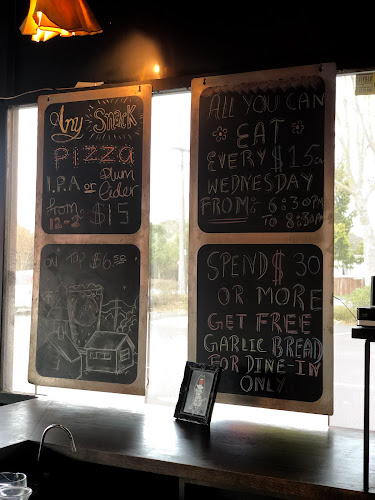 Any Snack
PIZZA
I.P.A or Plum Cider
from $15
12-2
ON TAP $6.50
ALL YOU CAN
EAT
EVERY $15
WEDNESDAY
FROM: 6:30PM
TO 8:30PM
SPEND $30
OR MORE
GET FREE
GARLIC BREAD
FOR DINE-IN
ONLY